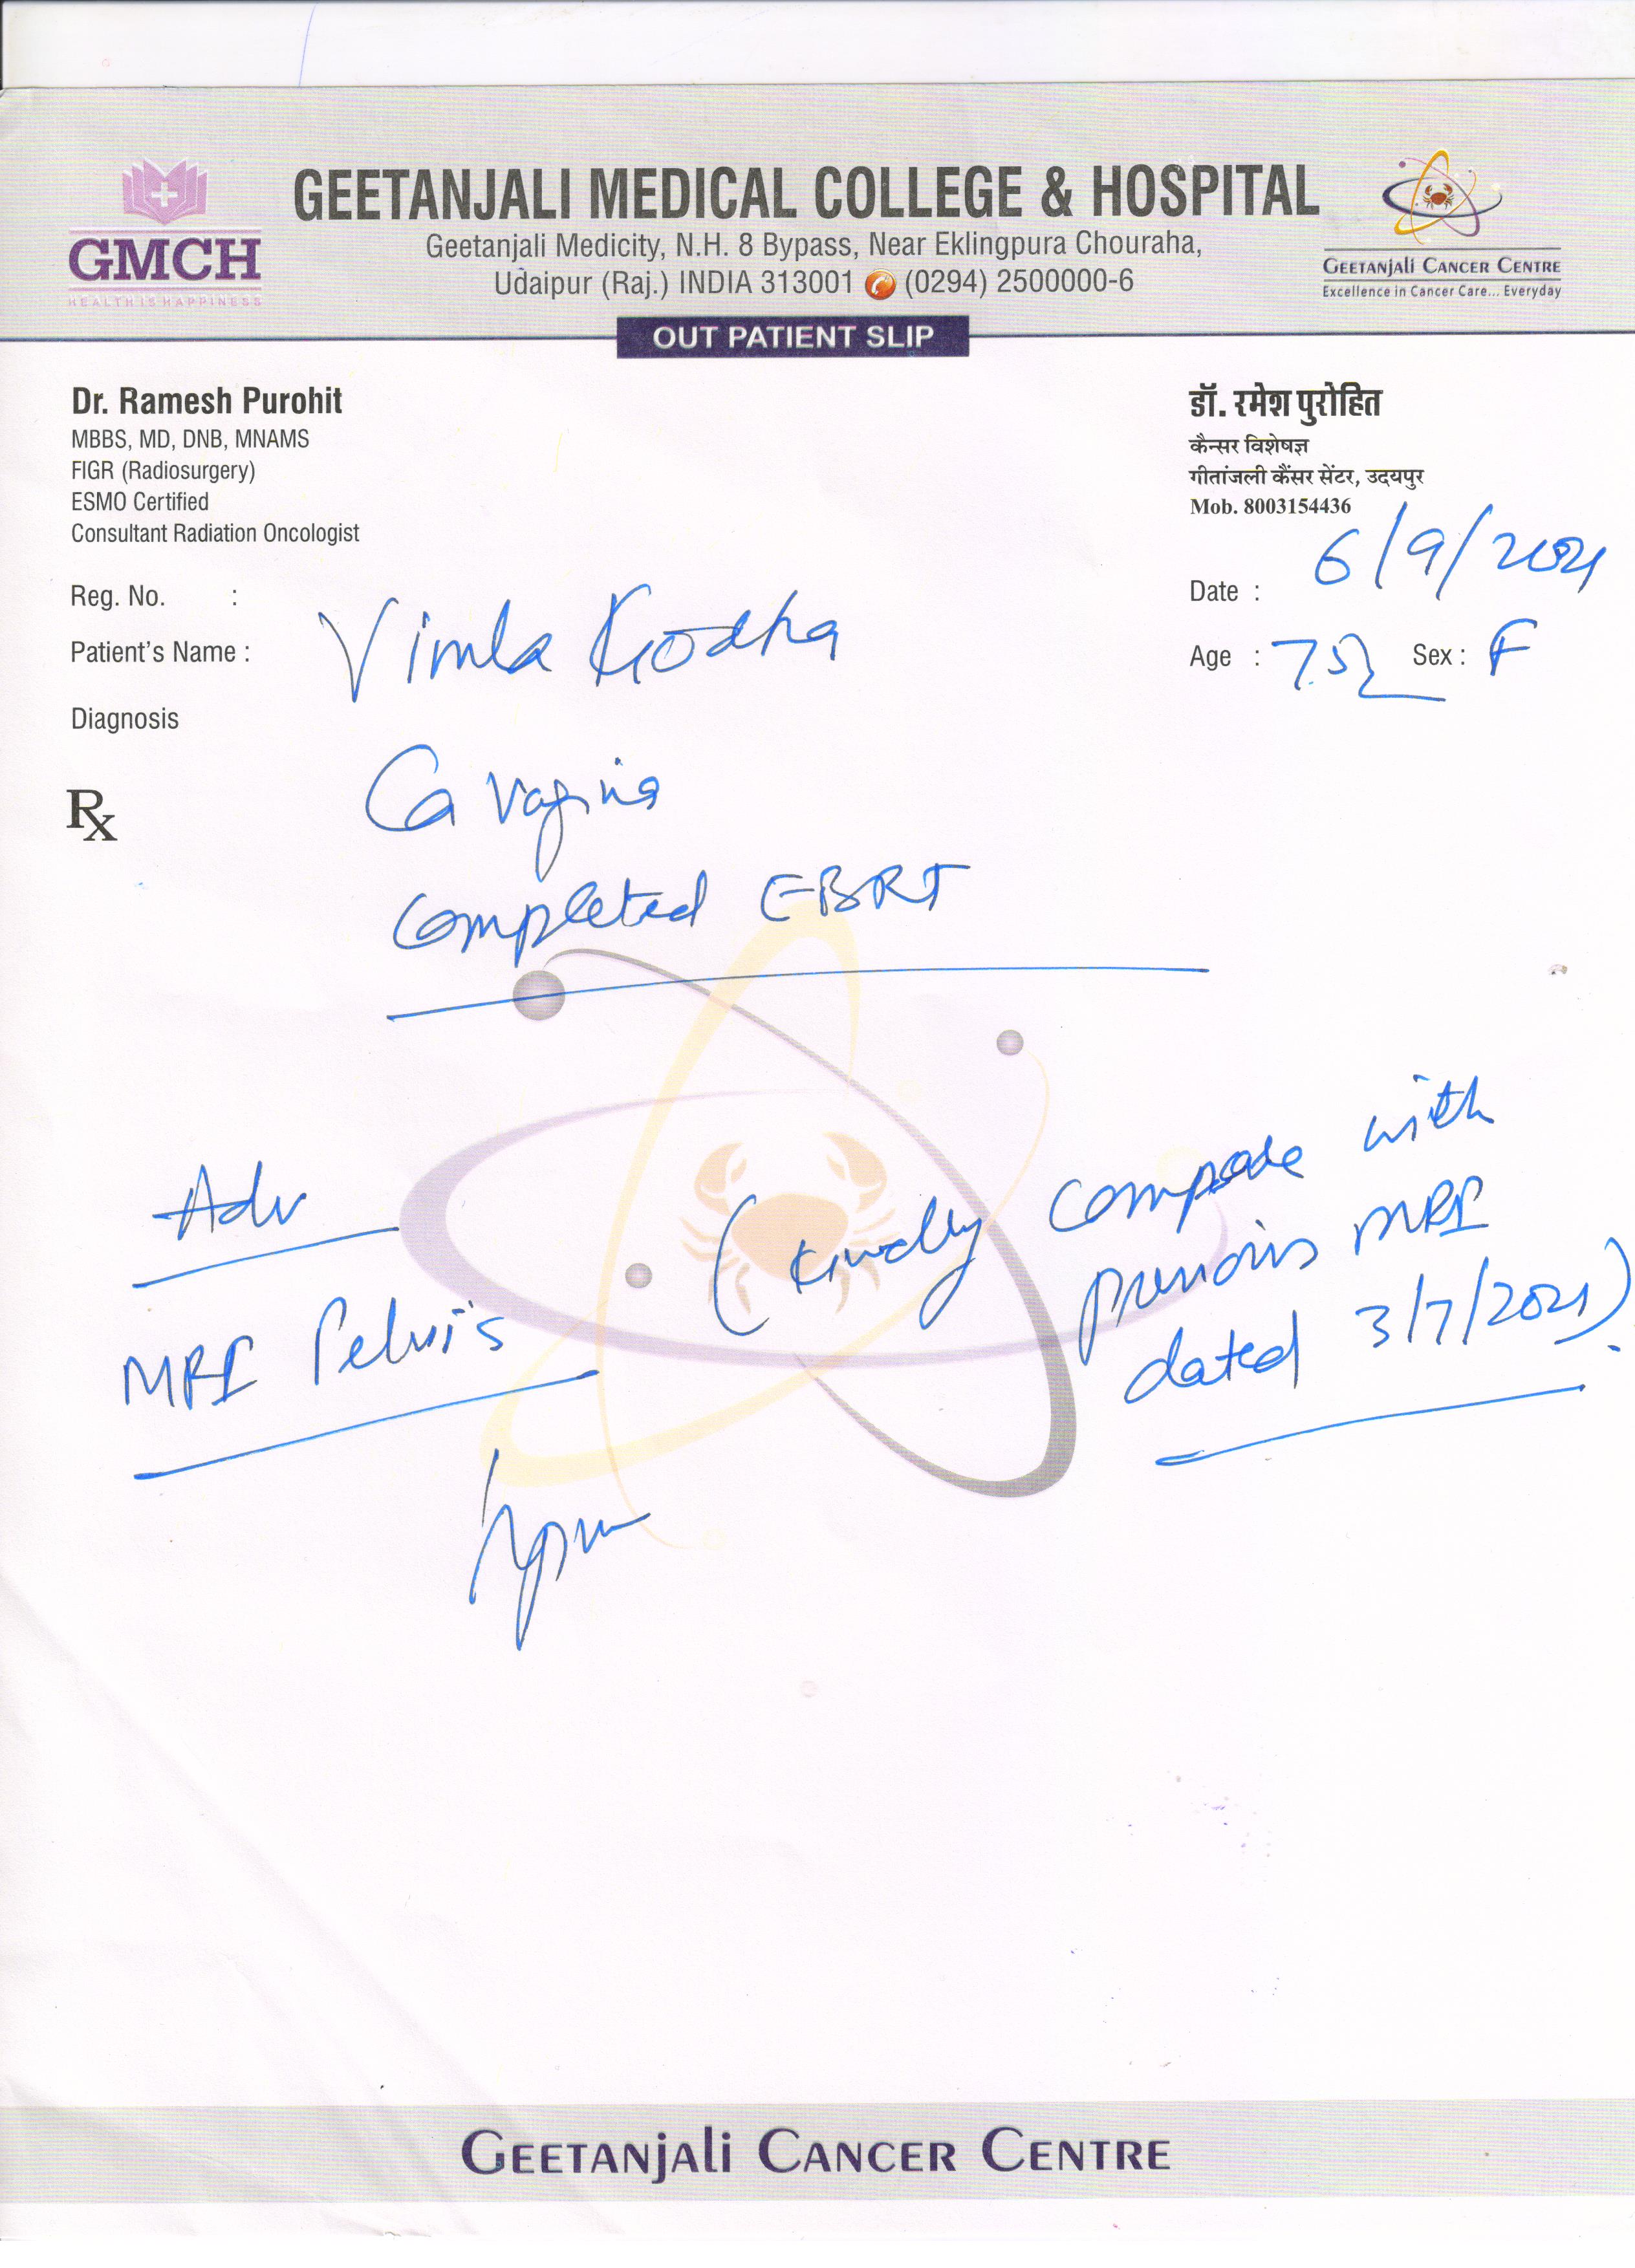 GMCH
HEALTH IS HAPPINESS
GEETANJALI MEDICAL COLLEGE & HOSPITAL
Geetanjali Medicity, N.H. 8 Bypass, Near Eklingpura Chouraha,
Udaipur (Raj.) INDIA 313001 (0294) 2500000-6
GEETANjALi CANCER CENTRE
Excellence in Cancer Care... Everyday
OUT PATIENT SLIP
Dr. Ramesh Purohit
MBBS, MD, DNB, MNAMS
FIGR (Radiosurgery)
ESMO Certified
Consultant Radiation Oncologist
डॉ. रमेश पुरोहित
कैन्सर विशेषज्ञ
गीतांजली कैंसर सेंटर, उदयपुर
Mob. 8003154436
Date : 6/9/2021
Reg. No. :
Patient's Name : Vimla
Age : 75 Sex : F
Diagnosis
Rx
Ca vagina
Completed EBRT
Adv
MRI Pelvis
(Kindly compare with
previous MRI
dated 3/7/2021)
GEETANjALi CANCER CENTRE